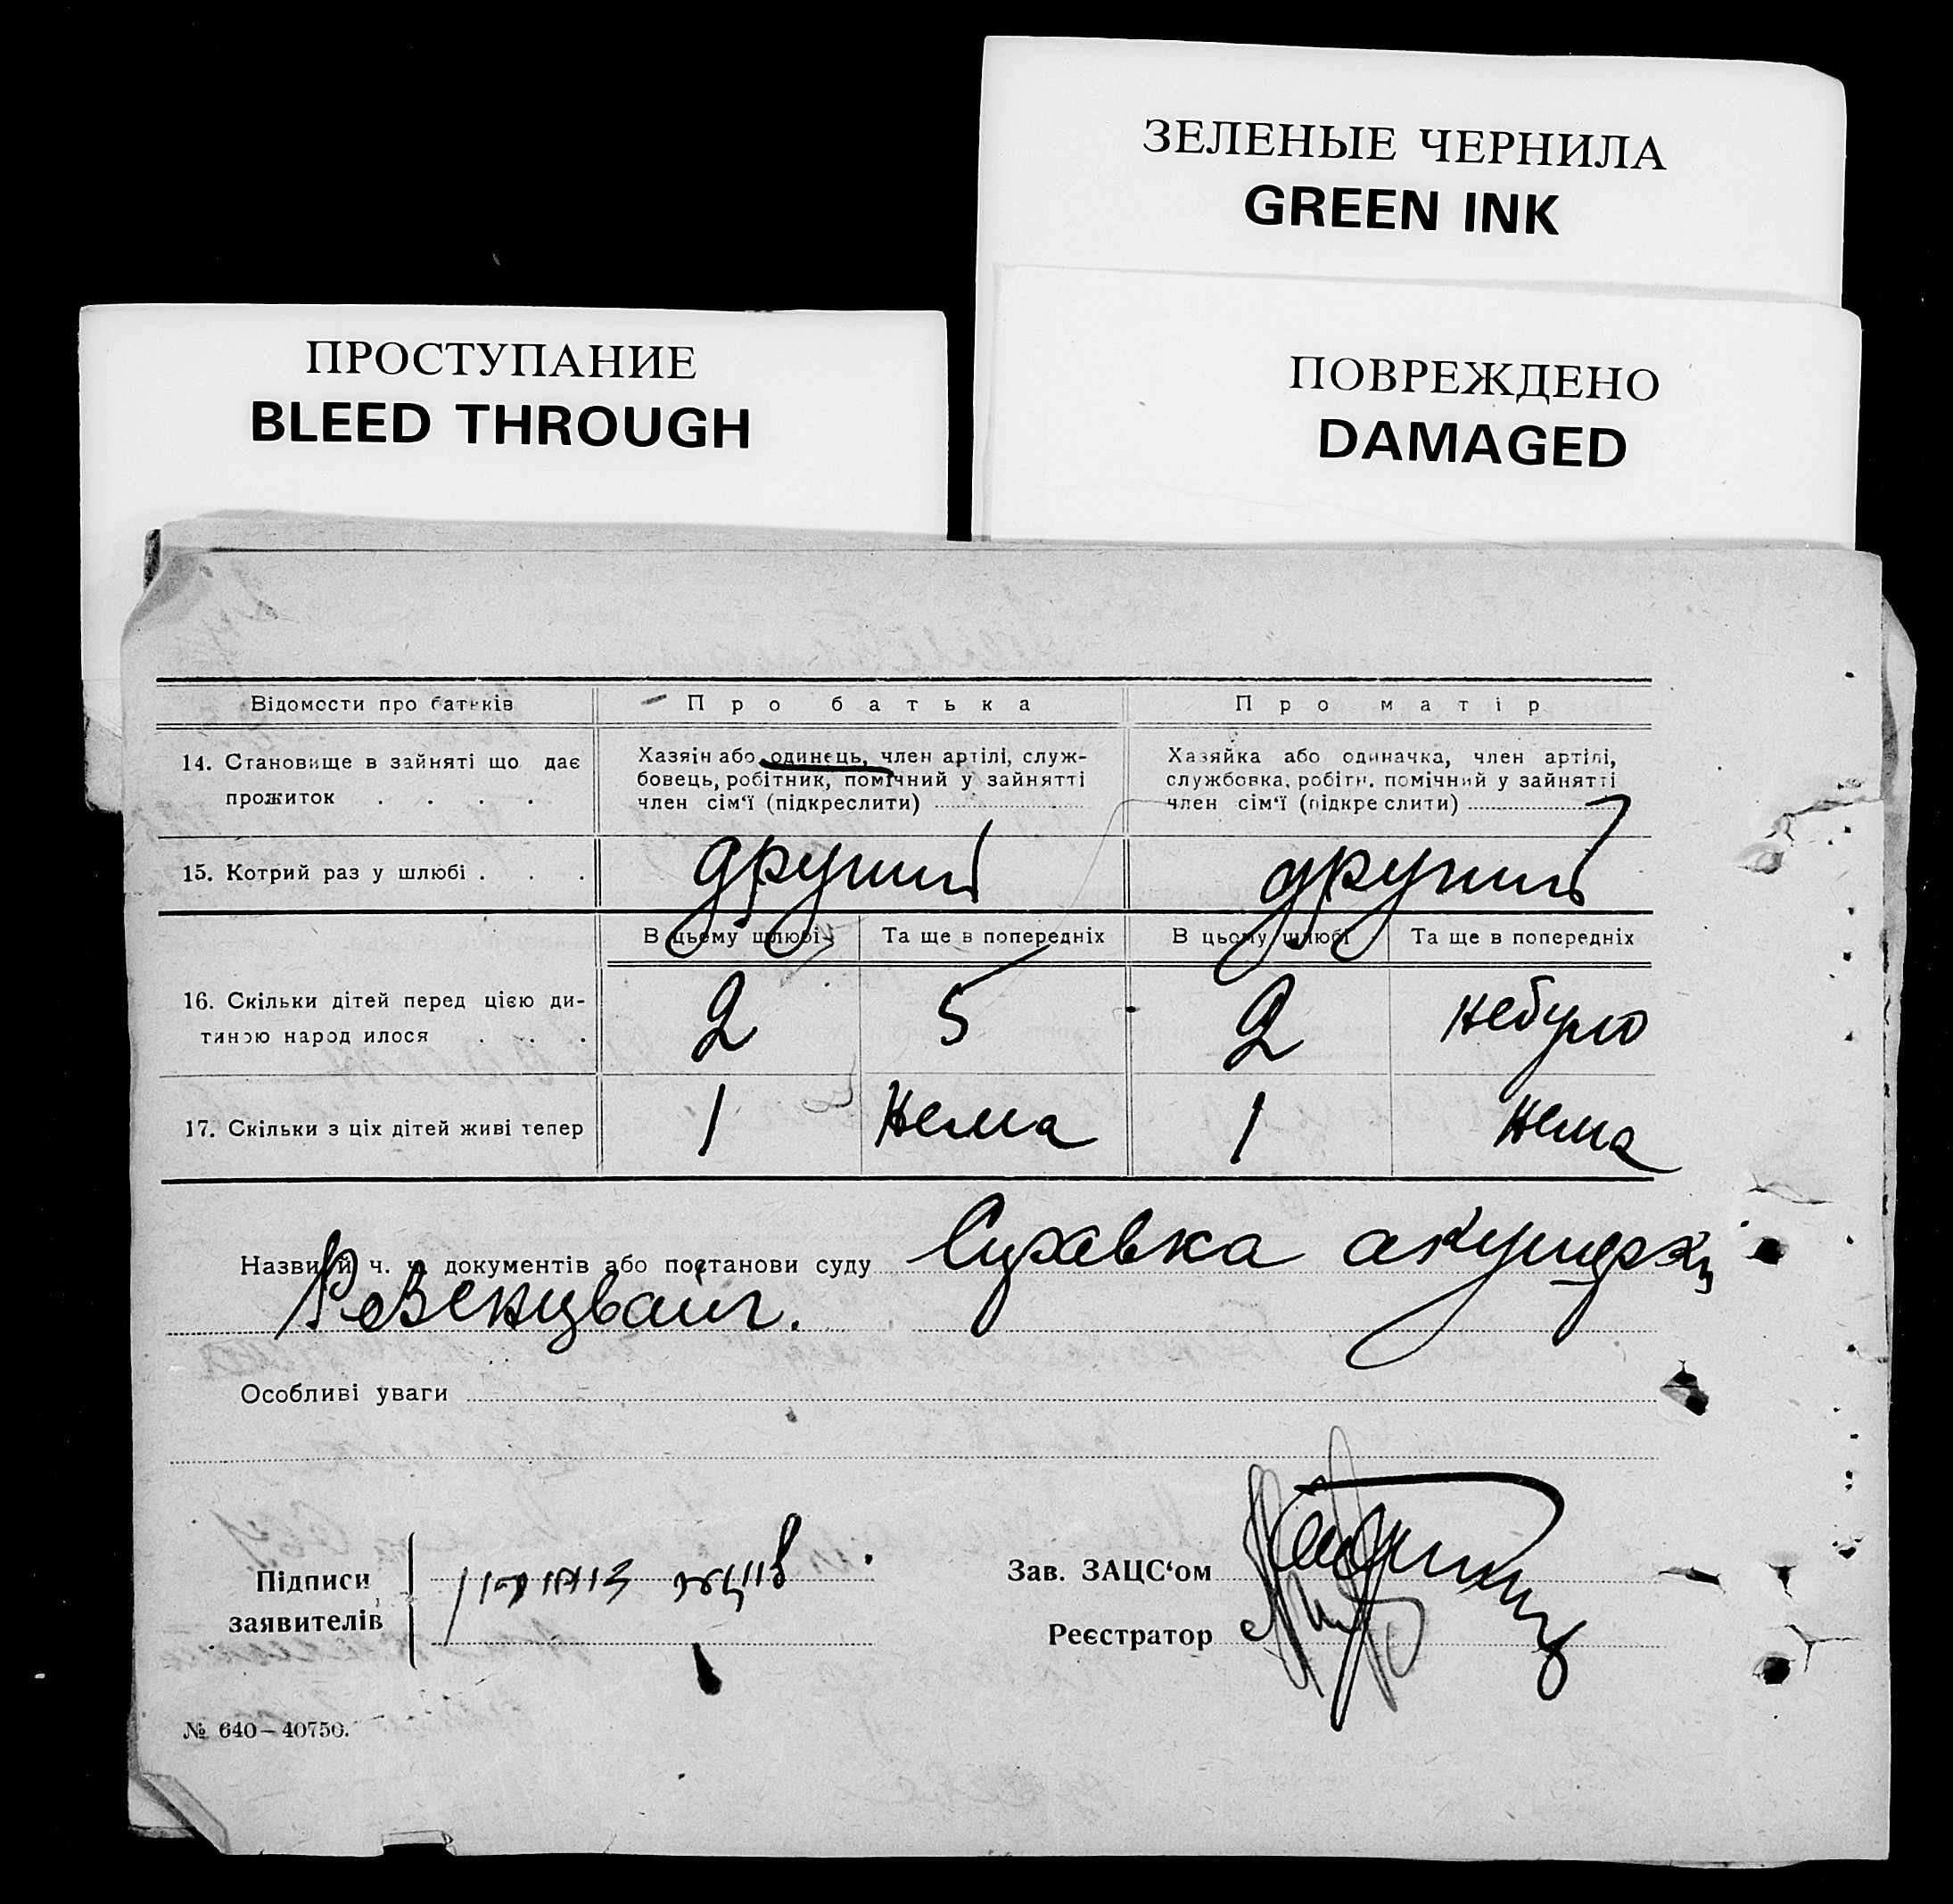 ЗЕЛЕНЫЕ ЧЕРНИЛА
GREEN INK
ПРОСТУПАНИЕ
BLEED THROUGH
ПОВРЕЖДЕНО
DAMAGED
Відомости про батьків
Про батька
Про матір
14. Становище в зайняті що дає
прожиток . . . .
Хазяїн або одинець, член артілі, служ-
бовець, робітник, помічний у зайнятті
член сім'ї (підкреслити)
Хазяйка або одиначка, член артілі,
службовка, робітн. помічний у зайнятті
член сім'ї (підкреслити)
15. Котрий раз у шлюбі . . .
другий
другий
В цьому шлюбі
Та ще в попередніх
В цьому шлюбі
Та ще в попередніх
16. Скільки дітей перед цією ди-
тиною народилося . . .
2
5
2
небуло
17. Скільки з ціх дітей живі тепер
1
Нема
1
Нема
Назви й ч. ч. документів або постанови суду
акушерки
Особливі уваги
Підписи
заявителів
Зав. ЗАЦС'ом
Реєстратор
№ 640–40750.